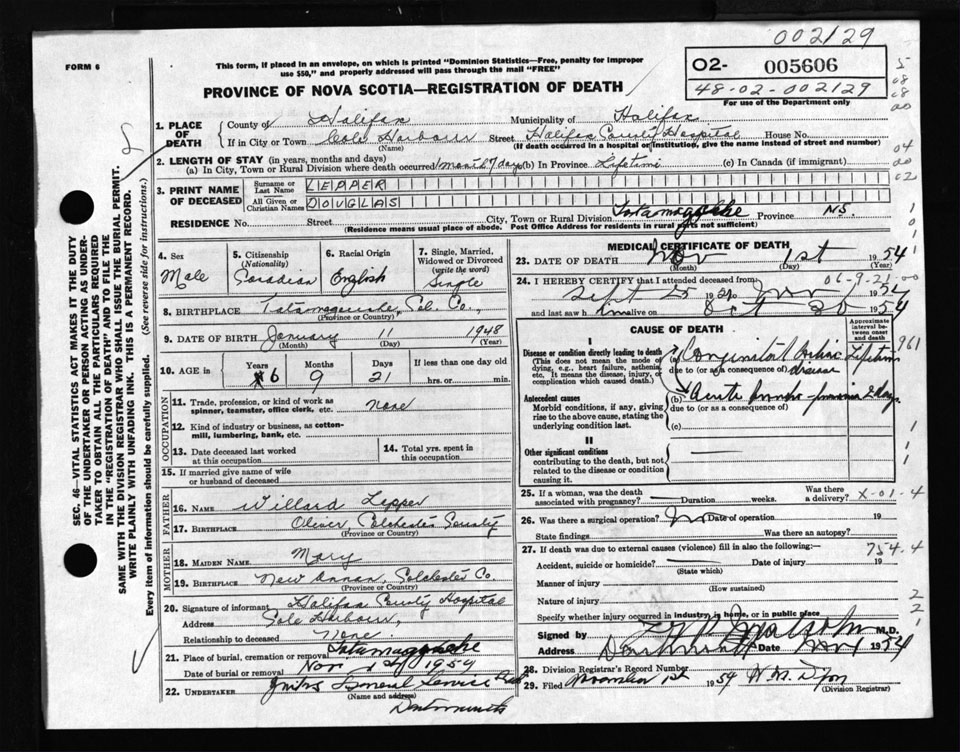 002129
FORM 6
This form, if placed in an envelope, on which is printed "Dominion Statistics—Free, penalty for improper
use $50," and properly addressed will pass through the mail "FREE"
PROVINCE OF NOVA SCOTIA—REGISTRATION OF DEATH
O2- 005606
48-02-002129
For use of the Department only
1. PLACE OF DEATH
County of Halifax Municipality of Halifax
If in City or Town Cole Harbour Street Halifax County Hospital House No.
(Name) (If death occurred in a hospital or institution, give the name instead of street and number)
2. LENGTH OF STAY (in years, months and days)
(a) In City, Town or Rural Division where death occurred 1 month 7 days (b) In Province Lifetime (c) In Canada (if immigrant)
3. PRINT NAME OF DECEASED
Surname or Last Name LEPPER
All Given or Christian Names DOUGLAS
RESIDENCE No. Street City, Town or Rural Division Tatamagouche Province NS
(Residence means usual place of abode. Post Office Address for residents in rural parts not sufficient)
4. Sex Male
5. Citizenship (Nationality) Canadian
6. Racial Origin English
7. Single, Married, Widowed or Divorced (write the word) Single
8. BIRTHPLACE Tatamagouche, Col. Co.,
(Province or Country)
9. DATE OF BIRTH January 11 1948
(Month) (Day) (Year)
10. AGE in Years 6 Months 9 Days 21 If less than one day old
hrs. or min.
OCCUPATION
11. Trade, profession, or kind of work as spinner, teamster, office clerk, etc. None
12. Kind of industry or business, as cotton-mill, lumbering, bank, etc.
13. Date deceased last worked at this occupation
14. Total yrs. spent in this occupation
15. If married give name of wife or husband of deceased
FATHER
16. NAME Willard Lepper
17. BIRTHPLACE Oliver, Colchester County
(Province or Country)
MOTHER
18. MAIDEN NAME Mary
19. BIRTHPLACE New Annan, Colchester Co.
(Province or Country)
20. Signature of informant Halifax County Hospital
Address Cole Harbour,
Relationship to deceased None.
21. Place of burial, cremation or removal Tatamagouche
Date of burial or removal Nov 1954
22. UNDERTAKER Funeral Service
(Name and address)
Dartmouth
MEDICAL CERTIFICATE OF DEATH
23. DATE OF DEATH Nov 1st 1954
(Month) (Day) (Year)
06-9-21-00
24. I HEREBY CERTIFY that I attended deceased from
Sept 25 19 to Nov 1 1954
and last saw h im alive on Oct 30 1954
CAUSE OF DEATH
Approximate interval between onset and death
I
Disease or condition directly leading to death
(This does not mean the mode of dying, e.g., heart failure, asthenia, etc. It means the disease, injury, or complication which caused death.)
(a) Congenital Cardiac disease Lifetime
due to (or as a consequence of)
Antecedent causes
Morbid conditions, if any, giving rise to the above cause, stating the underlying condition last.
(b) Acute broncho-pneumonia 2 days
due to (or as a consequence of)
(c)
II
Other significant conditions
contributing to the death, but not related to the disease or condition causing it.
25. If a woman, was the death associated with pregnancy? Duration weeks. Was there a delivery? X-01-4
26. Was there a surgical operation? No Date of operation 19
State findings Was there an autopsy?
27. If death was due to external causes (violence) fill in also the following:— 754.4
Accident, suicide or homicide? Date of injury 19
(State which)
Manner of injury
(How sustained)
Nature of injury
Specify whether injury occurred in industry, in home, or in public place
Signed by M.D.
Address Dartmouth Date Nov 1 1954
28. Division Registrar's Record Number
29. Filed November 1st 1954 W.M. Dyon
(Division Registrar)
SEC. 46—VITAL STATISTICS ACT MAKES IT THE DUTY
OF THE UNDERTAKER OR PERSON ACTING AS UNDER-
TAKER TO OBTAIN ALL THE PARTICULARS REQUIRED
IN THE "REGISTRATION OF DEATH" AND TO FILE THE
SAME WITH THE DIVISION REGISTRAR WHO SHALL ISSUE THE BURIAL PERMIT.
WRITE PLAINLY WITH UNFADING INK. THIS IS A PERMANENT RECORD.
Every item of information should be carefully supplied. (See reverse side for instructions.)